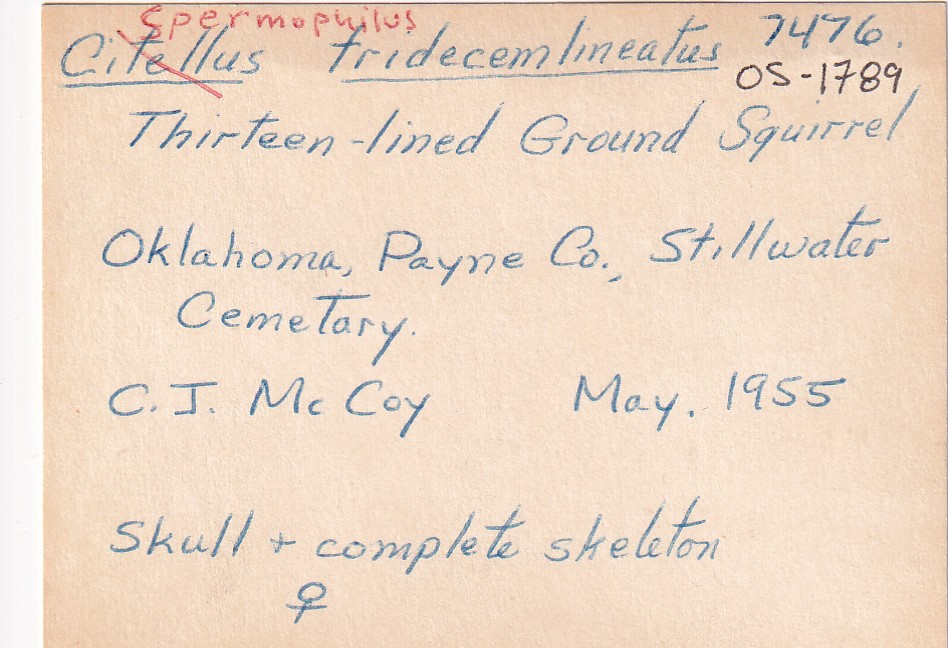 Spermophilus
Citellus tridecemlineatus 7476.
OS-1789
Thirteen-lined Ground Squirrel
Oklahoma, Payne Co., Stillwater
Cemetary.
C.J. McCoy May. 1955
Skull + complete skeleton
♀